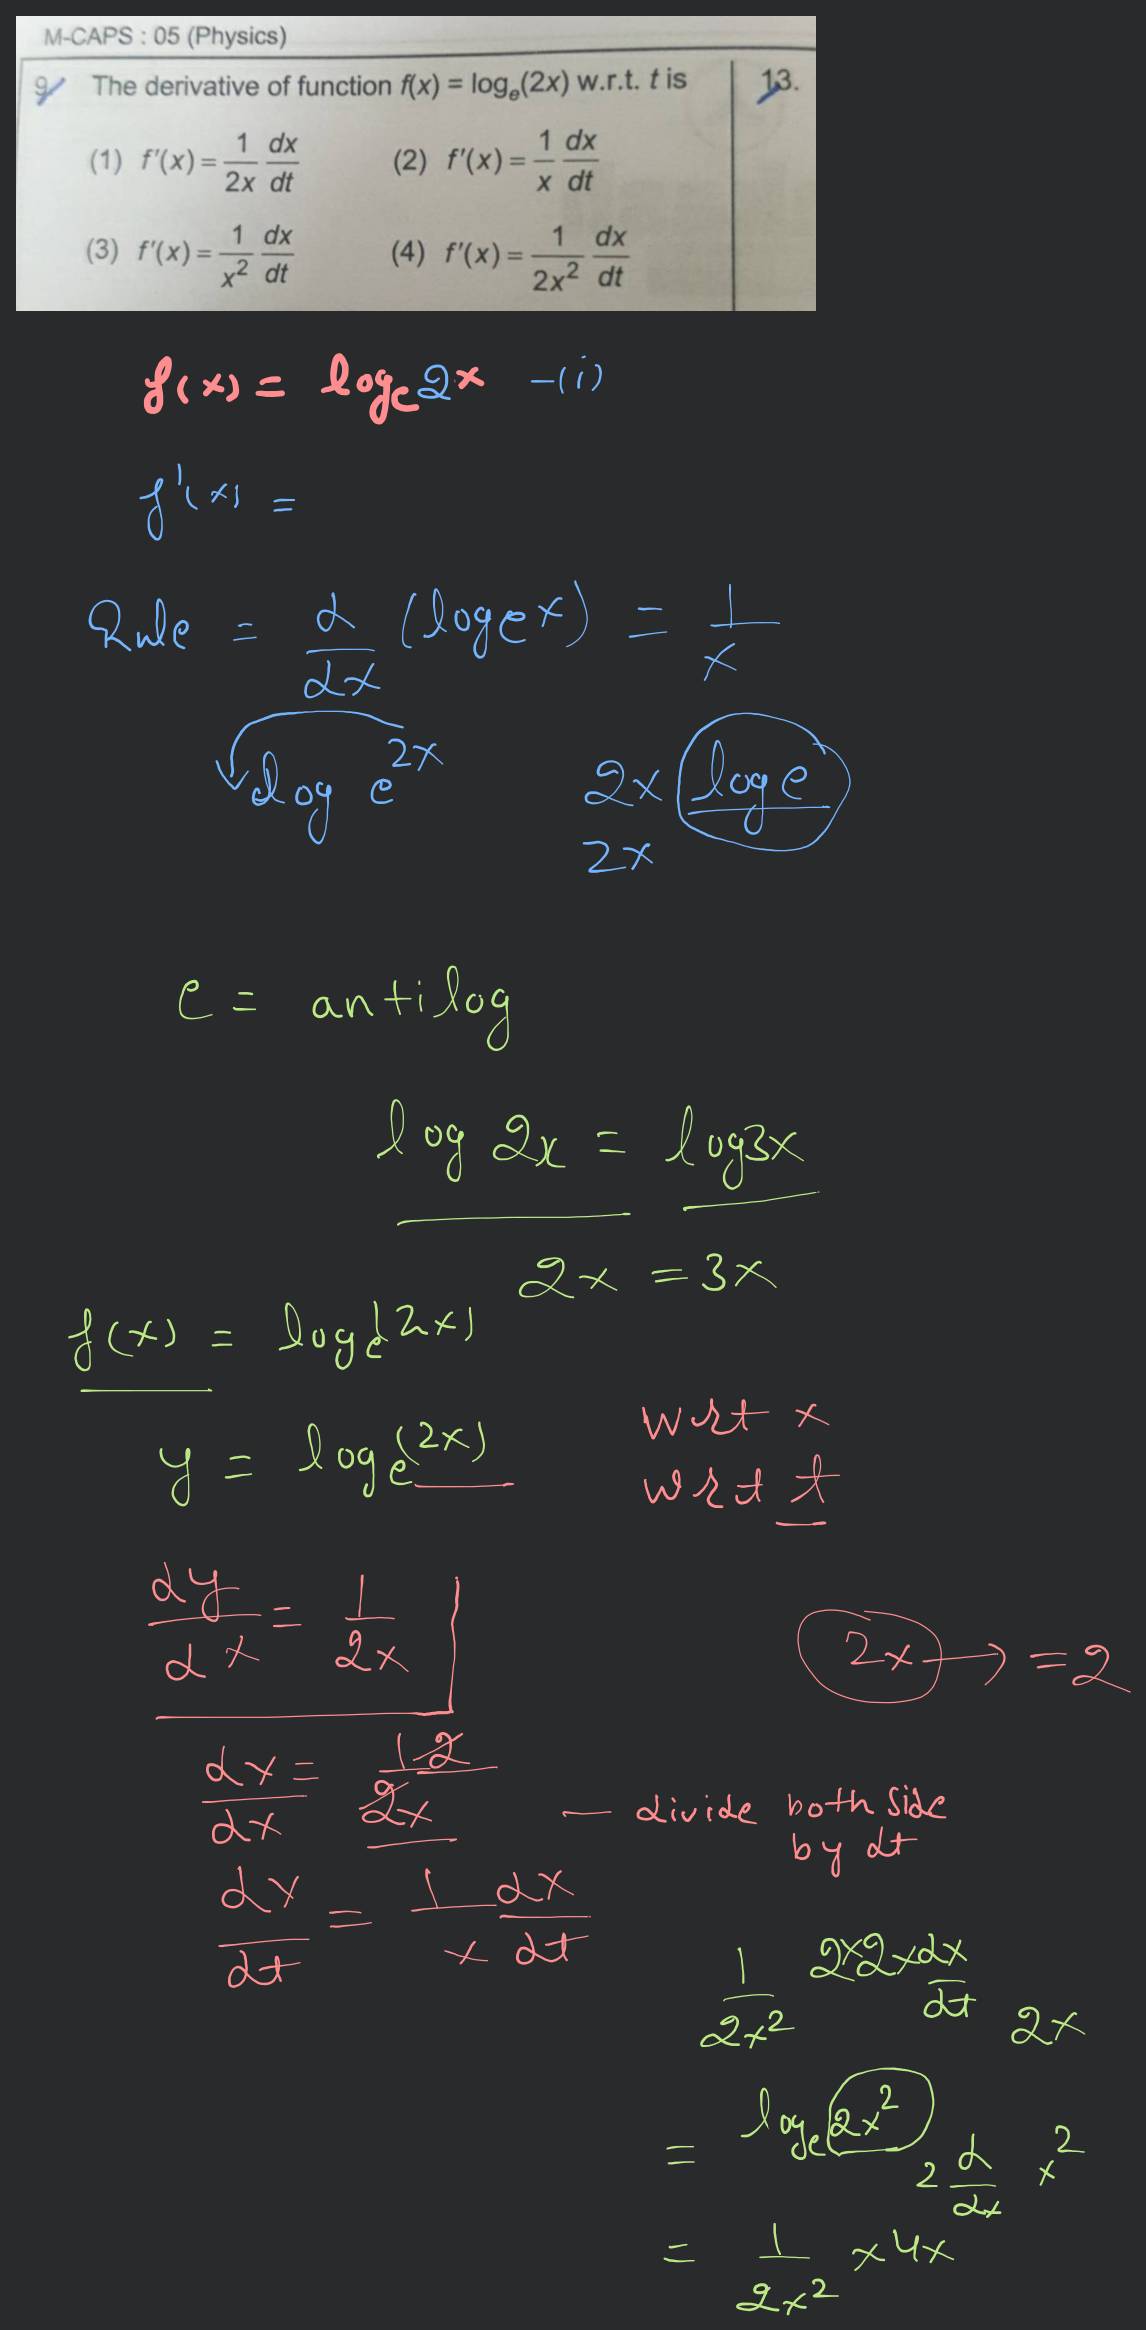 M-CAPS : 05 (Physics)
9. The derivative of function f(x) = logₑ(2x) w.r.t. t is
13.
(1) f'(x) = 1/2x dx/dt (2) f'(x) = 1/x dx/dt
(3) f'(x) = 1/x² dx/dt (4) f'(x) = 1/2x² dx/dt
f(x) = logₑ 2x -(i)
f'(x) =
Rule = d/dx (logₑx) = 1/x
log e^2x 2x log e
2x
e = antilog
log 2x = log3x
2x = 3x
f(x) = logₑ(2x)
y = logₑ(2x)
wrt x
wrt t
dy/dx = 1/2x
2x → = 2
dy/dx = 1·2/2x — divide both side
by dt
dy/dt = 1/x dx/dt
1/2x² 2×2x dx/dt 2x
= logₑ 2x²
2 d/dx x²
= 1/2x² × 4x